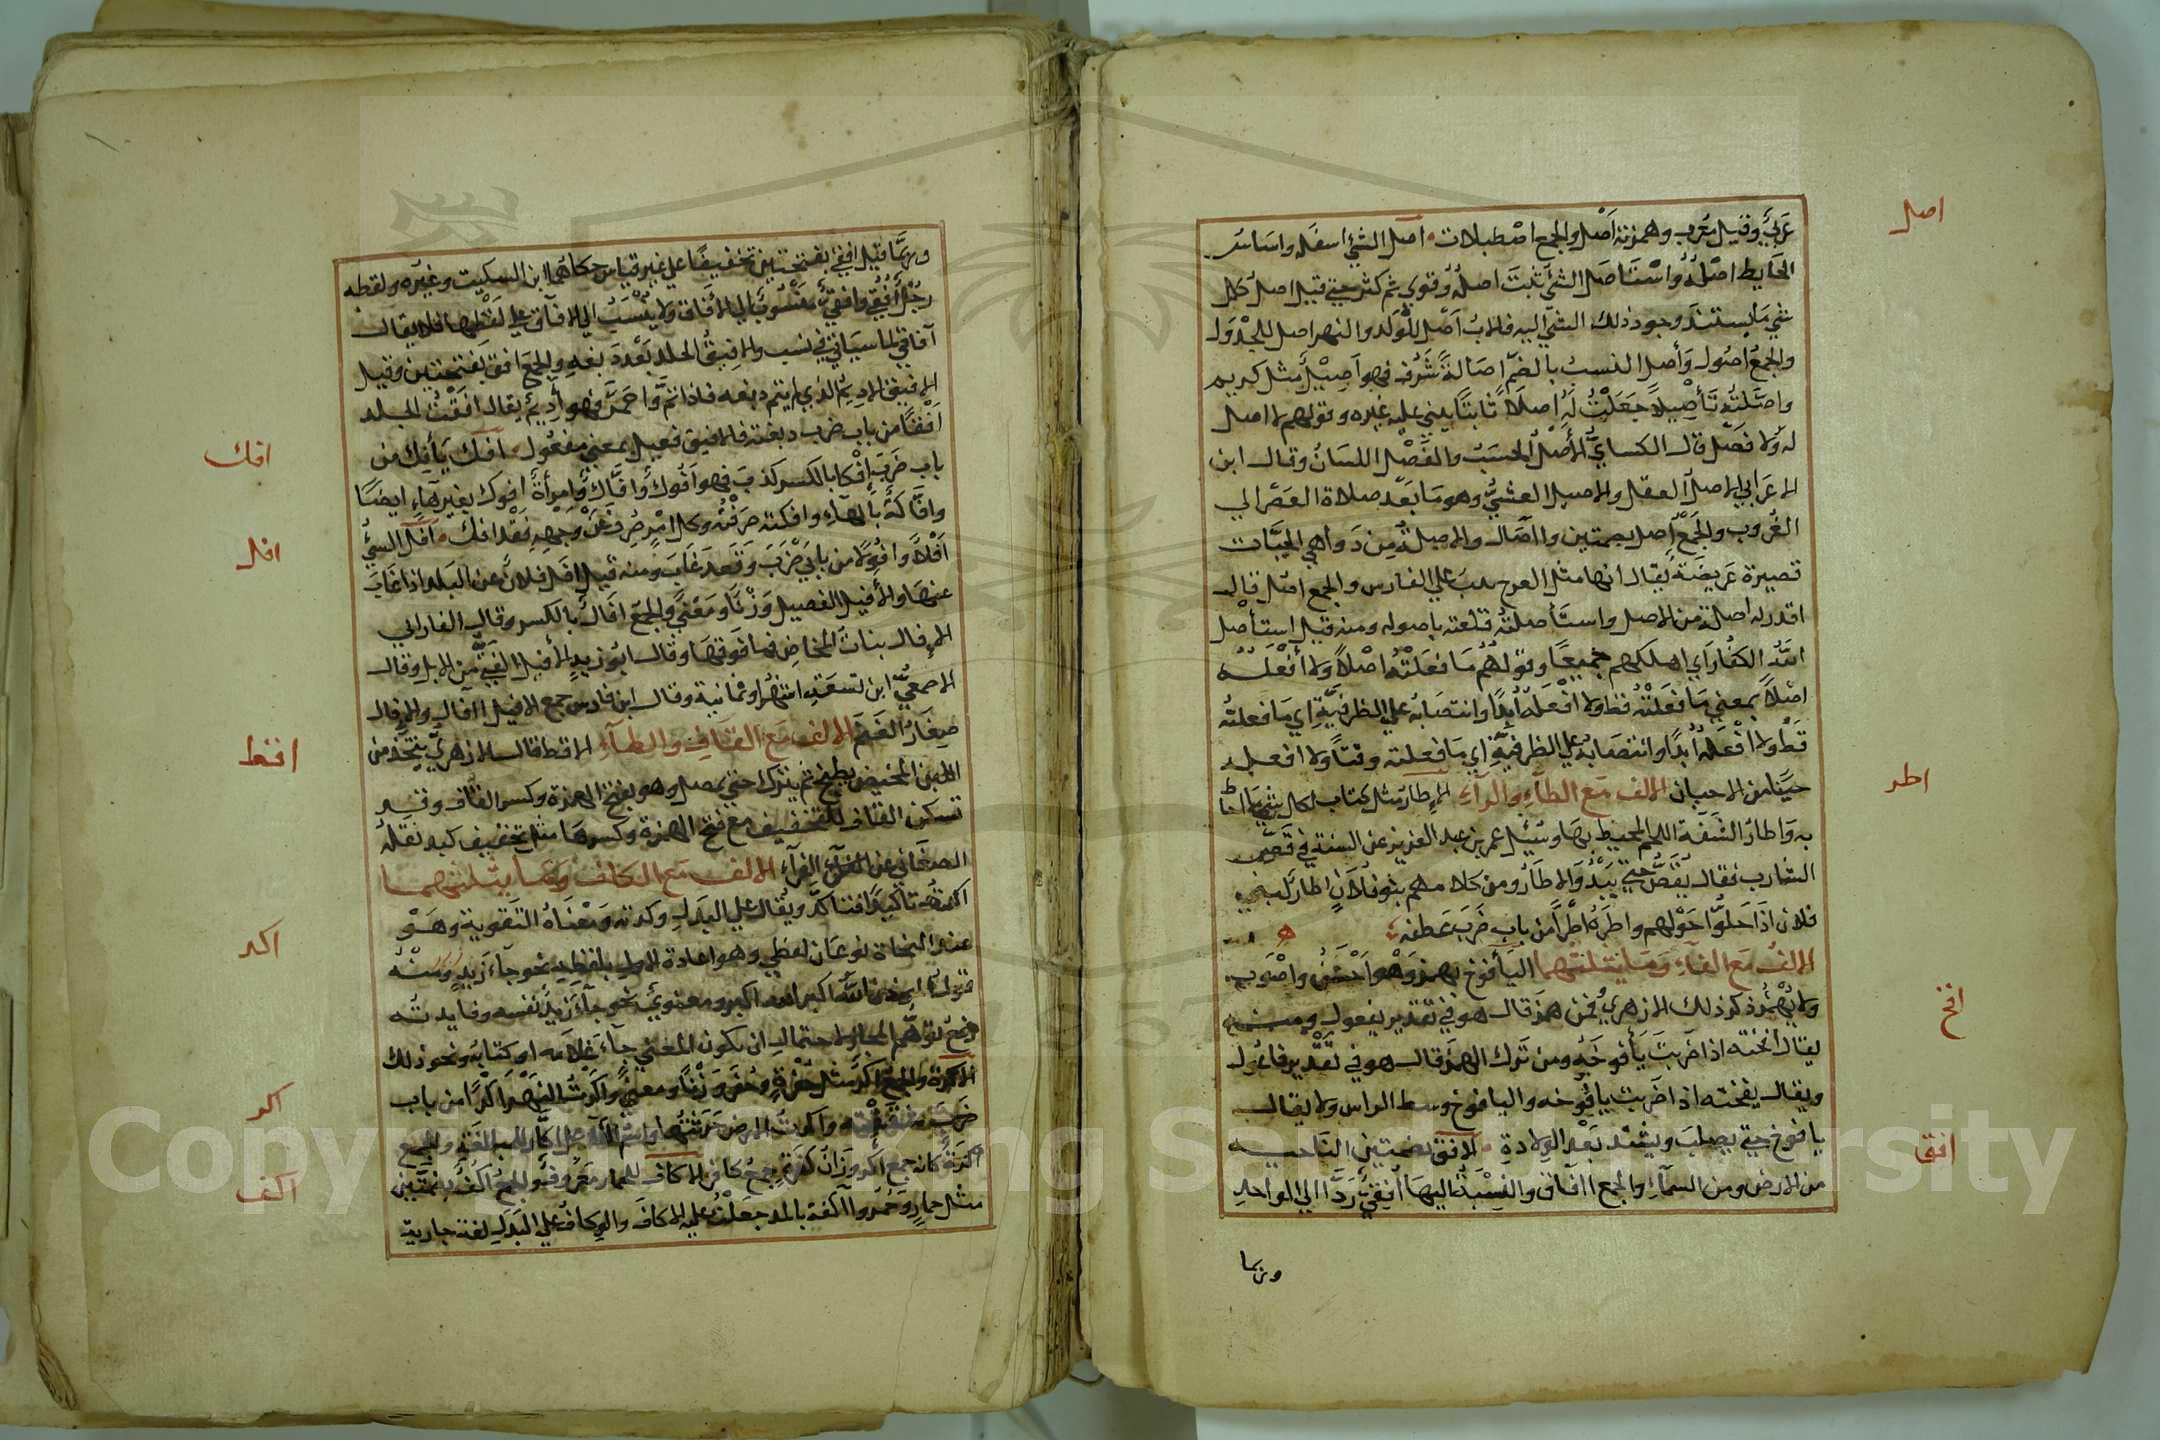 اصل
عربي وقيل معرب وهمزته أصل والجمع اصطبلات اصل الشئ اسفله واساس
الحايط اصله واستاصل الشئ ثبت اصله وقوي ثم كثر حتى قيل اصل كل
شي ما يستند وجود ذلك الشئ اليه فالاب اصل للولد والنهر اصل للجدول
والجمع اصول وأصل النسب بالضم اصالة شرف فهو اصيل مثل كريم
واصلته تأصيلا جعلت له اصلا ثابتا يبني عليه غيره وقولهم لا اصل
له ولا فصل قال الكساي الأصل الحسب والفصل اللسان وقال ابن
الاعرابي الاصل العقل والاصيل العشي وهو ما بعد صلاة العصر الي
الغروب والجمع اصل بضمتين واآصال والاصلة من دواهي الحيات
قصيرة عريضة يقال انها مثل الفرخ تثب علي الفارس والجمع اصل قال
اقدر له اصلة من الاصل واستأصلته قلعته باصوله ومنه قيل استأصل
الله الكفار اي اهلكهم جميعا وقولهم ما فعلته اصلا ولا أفعله
اصلا بمعني ما فعلته قط ولا افعله ابدا وانتصابه علي الظرفية اي ما فعلته
قط ولا افعله أبدا وانتصابه علي الظرفية اي ما فعلته وقتا ولا افعله
حينا من الاحيان الالف مع الطاء والراء الإطار مثل كتاب لكل شي ما احاط
اطر
به واطار الشفة اللحم المحيط بها وسئل عمر بن عبد العزيز عن السنة في قص
الشارب فقال يقص حتي يبدو الاطار ومن كلامهم بنو فلان اطار لبني
فلان اذا حلوا حولهم واطره اطرا من باب ضرب عطفه
الالف مع الفاء وما يثلثهما اليأفوخ يهمز وهو احسن واصوب
ولا يهمز ذكر ذلك الازهري فمن همز قال هو في تقدير يفعول ومنه
افخ
يقال افخته اذا ضربت يأفوخه ومن ترك الهمز قال هو في تقدير فاعول
ويقال يفخته اذا ضربت يافوخه واليافوخ وسط الراس ولا يقال
يافوخ حتي يصلب ويشتد بعد الولادة الافق بضمتين الناحيه
افق
من الارض ومن السماء والجمع اآفاق والنسبة اليها أفقي ردا الي الواحد
وربما
وربما قيل افقي بفتحتين تخفيفا علي غير قياس حكاهما ابن السكيت وغيره ولفظه
رجل أفقي وافقي منسوب الي الأفاق ولا ينسب الي الافاق علي لفظها فلا يقال
آفاقي لما سياتي في نسب والافيق الجلد بعد دبغه والجمع افق بفتحتين وقيل
الافيق الاديم الذي لم يتم دبغه فاذا تم واحمر فهو أديم يقال افقت الجلد
افقا من باب ضرب دبغته فالافيق فعيل بمعني مفعول افك يأفك من
افك
باب ضرب افكا بالكسر كذب فهو افوك وافاك وامرأة افوك بغير هاء ايضا
وافاكة بالهاء وافكته صرفته وكل امر صرف عن وجهه فقد افك افل الشئ
افل
افلا وافولا من بابي ضرب وقعد غاب ومنه قيل افل فلان عن البلد اذا غاب
عنها والأفيل الفصيل وزنا ومعني والجمع افال بالكسر وقال الفارابي
الإفال بنات المخاض فما فوقها وقال ابو زيد الأفيل الفتي من الابل وقال
الاصمعي ابن تسعة اشهر او ثمانية وقال ابن فارس جمع الافيل افال والإفال
صغار الغنم الالف مع القاف والطاء الاقط قال الازهري يتخذ من
اقط
اللبن المخيض يطبخ ثم يترك حتي يمصل وهو بفتح الهمزة وكسر القاف وقد
تسكن القاف للتخفيف مع فتح الهمزة وكسرها مثل تخفيف كبد نقله
الصغاني عن الفراء الالف مع الكاف وما يثلثهما
اكدته تاكيدا فتاكد ويقال علي البدل وكدته ومعناه التقوية وهو
اكد
عند النحاة نوعان لفظي وهو اعادة الاول بلفظه نحو جاء زيد زيد ومنه
قول المؤذن الله اكبر الله اكبر ومعنوي نحو جاء زيد نفسه وفايدته
رفع توهم المجاز لاحتمال ان يكون المعني جاء غلامه او كتابه ونحو ذلك
الاكرة والجمع اكر مثل حفرة وحفر وزنا ومعني واكرت النهر اكرا من باب
اكر
ضرب شققته واكرت الارض حرثتها واسم الفاعل اكار للمبالغة والجمع
اكرة كانه جمع آكر وزان كفرة جمع كافر الاكاف للحمار معروف والجمع اكف بضمتين
اكف
مثل حمار وحمر واآكفته بالمد جعلت عليه الاكاف والوكاف علي البدل لغة جارية